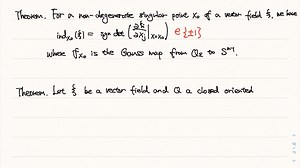 Theorem. For a non-degenerate singular point x₀ of a vector field ξ, we have
ind_{x₀}(ξ) = sgn det (∂ξᵢ/∂xⱼ |_{x=x₀}) ∈ {±1}
where f_{x₀} is the Gauss map from Q_ε to Sⁿ⁻¹.
Theorem. Let ξ be a vector field and Q a closed oriented